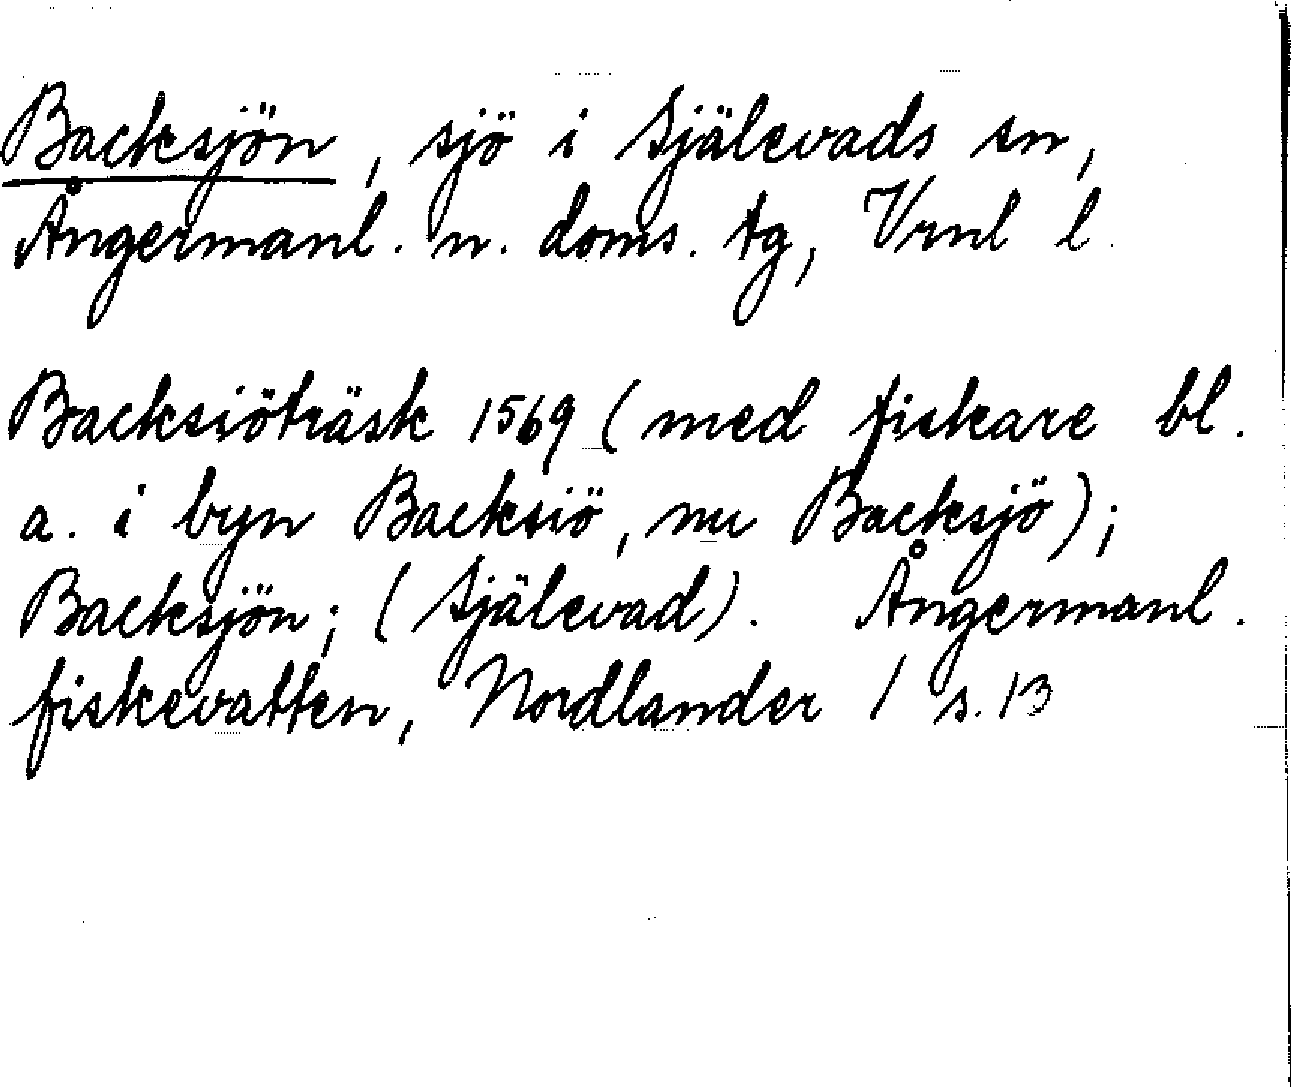 Backsjön, sjö i Själevads sn,
Ångermanl. n. doms. tg, Vrnl l.
Backsiöträsk 1569 (med fiskare bl.
a. i byn Backsiö, nu Backsjö);
Backsjön; (Själevad). Ångermanl.
fiskevatten, Nordlander 1 s. 13